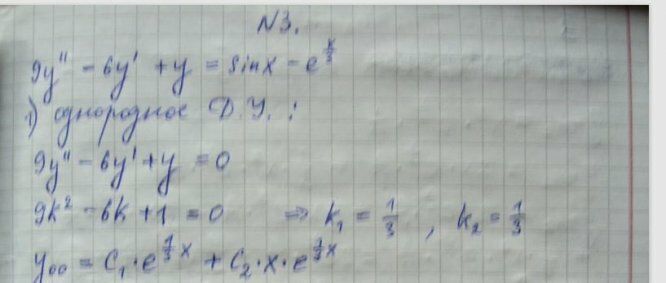 N3.
9y'' - 6y' + y = sinx - e^{x/3}
1) однородное Д.У. :
9y'' - 6y' + y = 0
9k² - 6k + 1 = 0 ⇒ k₁ = 1/3 , k₂ = 1/3
y₀₀ = C₁·e^{1/3 x} + C₂·x·e^{1/3 x}